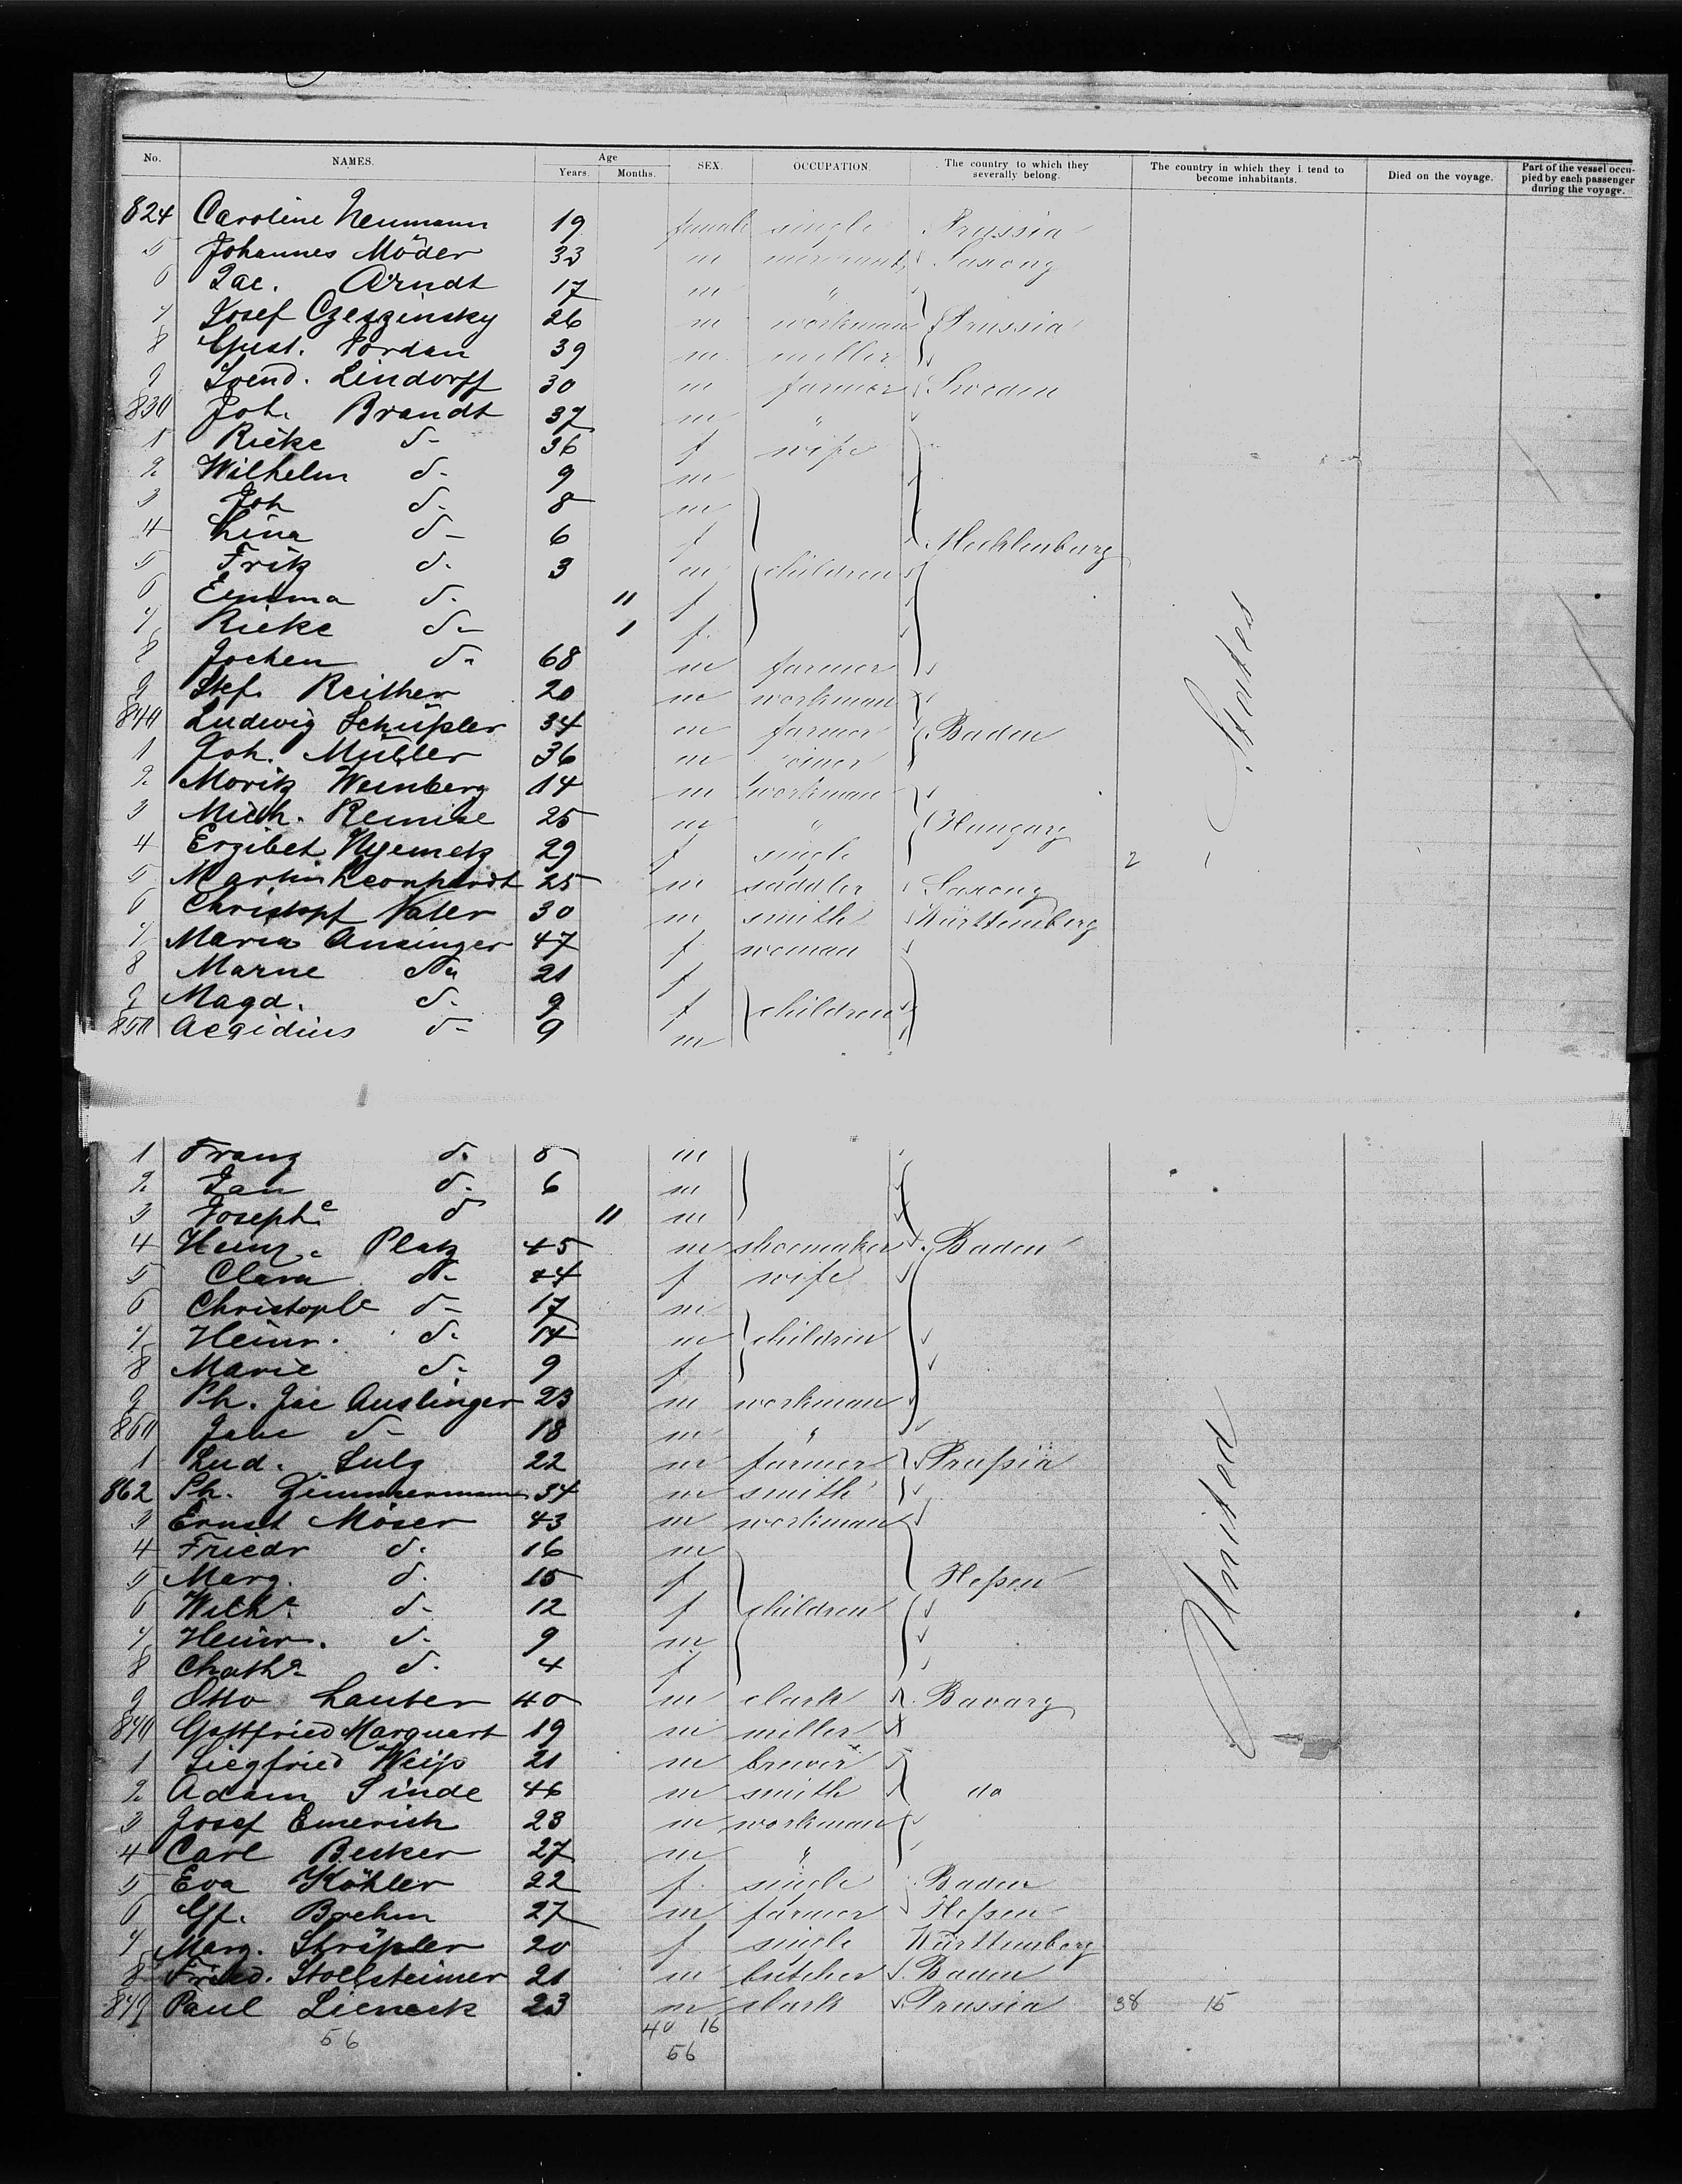 No. NAMES. Age Years. Months. SEX. OCCUPATION. The country to which they severally belong. The country in which they i tend to become inhabitants. Died on the voyage. Part of the vessel occupied by each passenger during the voyage.
824 Caroline Neumann 19 female single Prussia
5 Johannes Möder 33 m merchant Saxony
6 Jac. Arndt 17 m "
7 Josef Czeszinsky 26 m workman Prussia
8 Gust. Jordan 39 m miller
9 Svend. Lindorff 30 m farmer Sweden
830 Joh. Brandt 37 m "
1 Rieke d- 36 f wife
2 Wilhelm d- 9 m
3 Joh d- 8 m
4 Lina d- 6 f Mecklenburg
5 Fritz d- 3 m children
6 Emma d- 11 f
7 Rieke d- 1 f
8 Jochen d- 68 m farmer
9 Stef. Reither 20 m workman
840 Ludwig Schüßler 34 m farmer Baden
1 Joh. Müller 36 m joiner
2 Moritz Weinberg 14 m workman
3 Mich. 25 m " Hungary
4 Erzibet Nyemetz 29 f single 2
5 Martin Leonhardt 25 m saddler Saxony
6 Christopf Vater 30 m smith Württemberg
7 Maria Ansinger 47 f woman
8 Marne do 21 f
9 Magd. d- 9 f children
850 Aegidius d- 9 m
1 Franz d- 8 m
2 Jan d- 6 m
3 Josephe d 11 m
4 Heinr. Platz 45 m shoemaker Baden
5 Clara d- 44 f wife
6 Christople d- 17 m
7 Heinr. d- 14 m children
8 Marie d- 9 f
9 Ph. Jac Auslinger 23 m workman
860 d- 18 m "
1 Lud. Sulz 22 m farmer Prußia
862 Ph. Zimmermann 34 m smith
3 Ernst Möser 43 m workman
4 Friedr d. 16 m
5 Marg. d. 15 f Heßen
6 Wilhe d- 12 f children
7 Heinr. d- 9 m
8 d. 4 f
9 Otto Lauter 40 m clark Bavary
870 Gottfried Marquart 19 m miller
1 Siegfried Weiß 21 m brewer
2 Adam Sinde 46 m smith do
3 Josef Emerich 23 m workman
4 Carl Becker 27 m "
5 Eva Köhler 22 f single Baden
6 Gf. Brehm 27 m farmer Heßen
7 Marg. Ströpler 20 f single Württemberg
8 Fried. Stollsteimer 21 m butcher Baden
879 Paul Lieneck 23 m clark Prussia 38 15
56 40 16
56
United States